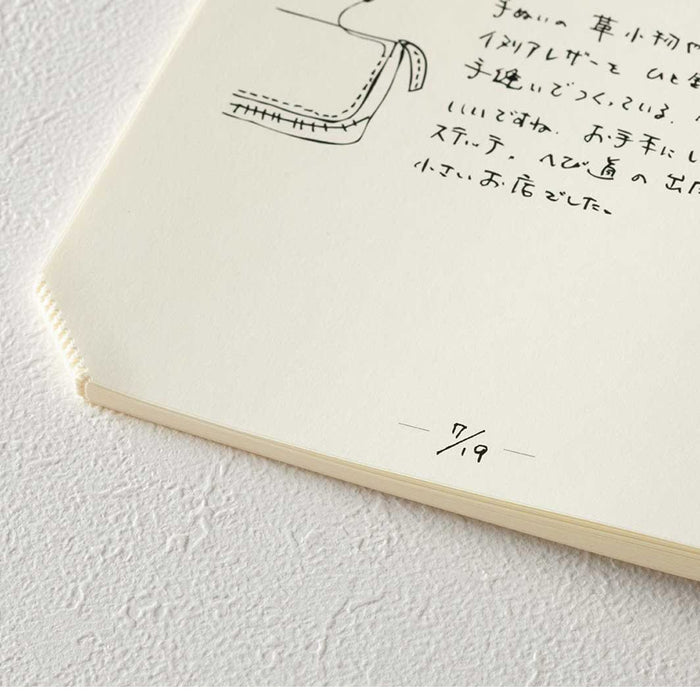 手ぬいの 革小物や
イタリアレザーを ひと針
手縫いでつくっている.
いいですね. お手本にし
ステッチ. へび道 の 出
小さいお店でした。
7/19